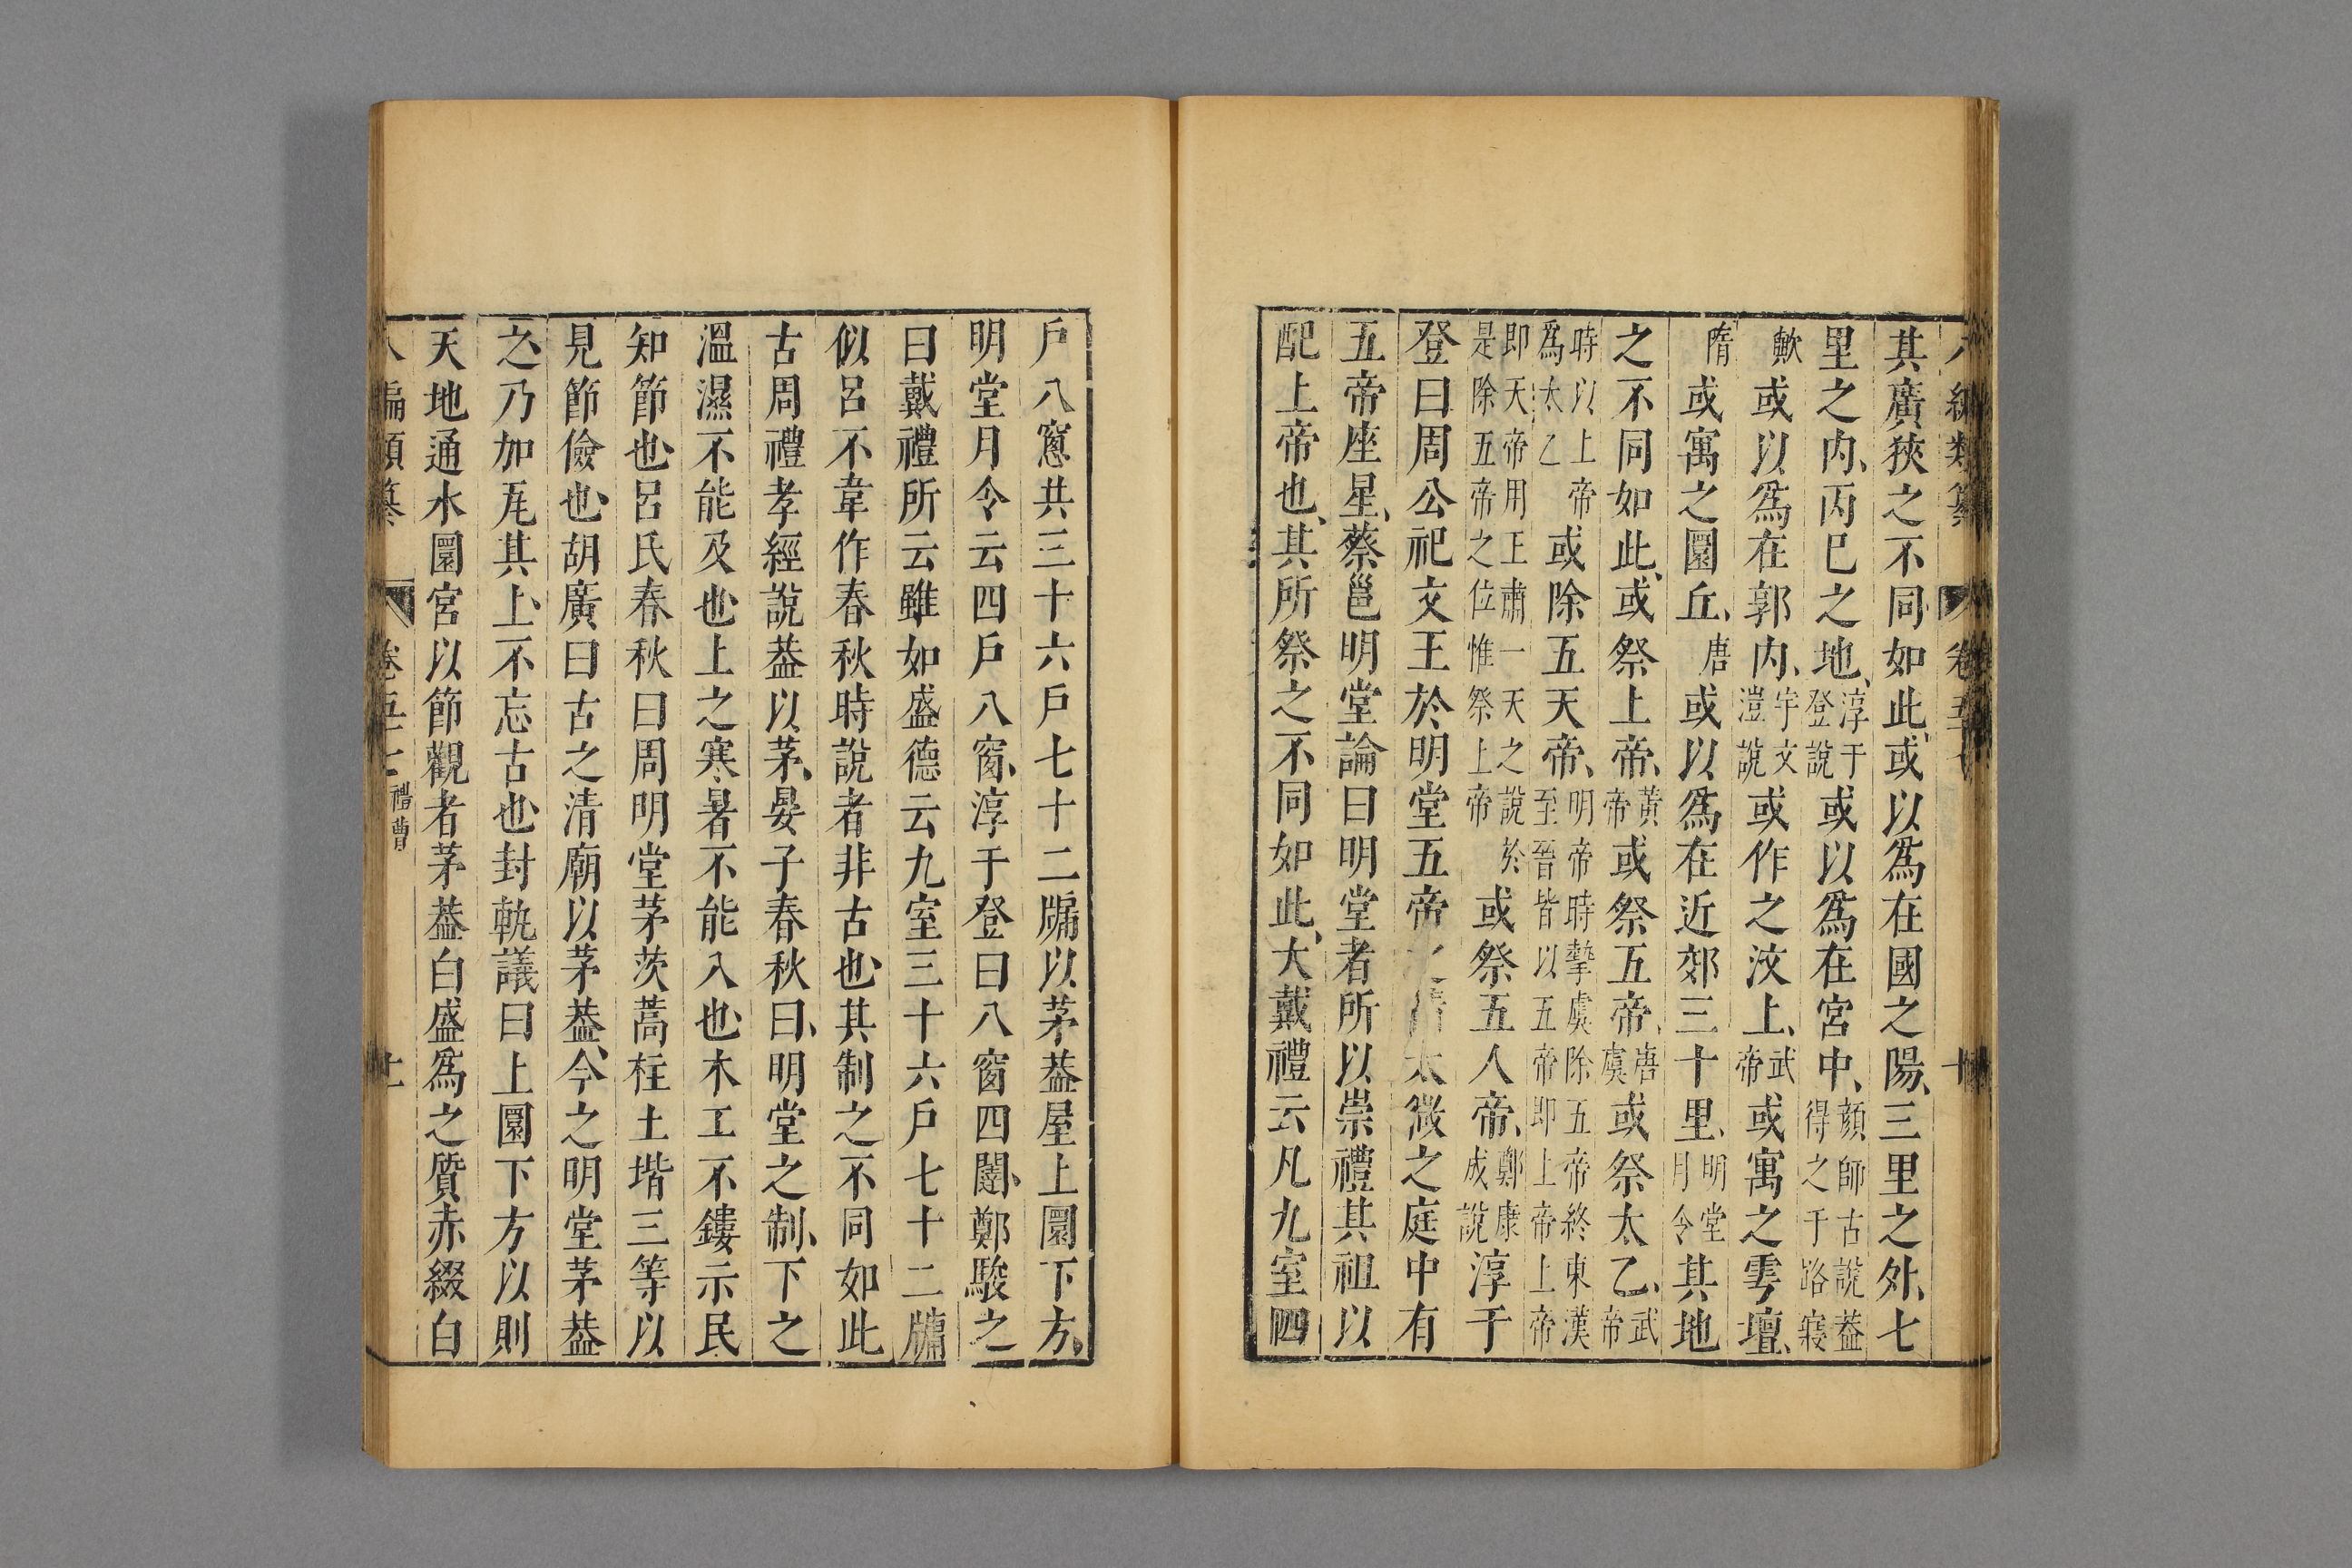 其廣狹之不同如此或以爲在國之陽三里之外七
里之内丙巳之地淳于登說或以爲在宮中顔師古說葢得之于路寢
歟或以爲在郭内宇文溰說或作之汶上武帝或寓之雩壇
隋或寓之圜丘唐或以爲在近郊三十里明堂月令其地
之不同如此或祭上帝黃帝或祭五帝唐虞或祭太乙武帝
時以上帝爲太乙或除五天帝明帝時摯虞除五帝終東漢至晉皆以五帝即上帝上帝
即天帝用王肅一天之說於是除五帝之位惟祭上帝或祭五人帝鄭康成說淳于
登曰周公祀文王於明堂五帝太微之庭中有
五帝座星蔡邕明堂論曰明堂者所以崇禮其祖以
配上帝也其所祭之不同如此大戴禮云凡九室四
戶八窻共三十六戶七十二牖以茅葢屋上圜下方
明堂月令云四戶八窗淳于登曰八窗四闥鄭駿之
曰戴禮所云雖如盛德云九室三十六戶七十二牖
似呂不韋作春秋時說者非古也其制之不同如此
古周禮孝經說葢以茅晏子春秋曰明堂之制下之
溫濕不能及也上之寒暑不能入也木工不鏤示民
知節也呂氏春秋曰周明堂茅茨蒿柱土堦三等以
見節儉也胡廣曰古之清廟以茅葢今之明堂茅葢
之乃加瓦其上不忘古也封軌議曰上圜下方以則
天地通水圜宮以節觀者茅葢白盛爲之質赤綴白
禮曹